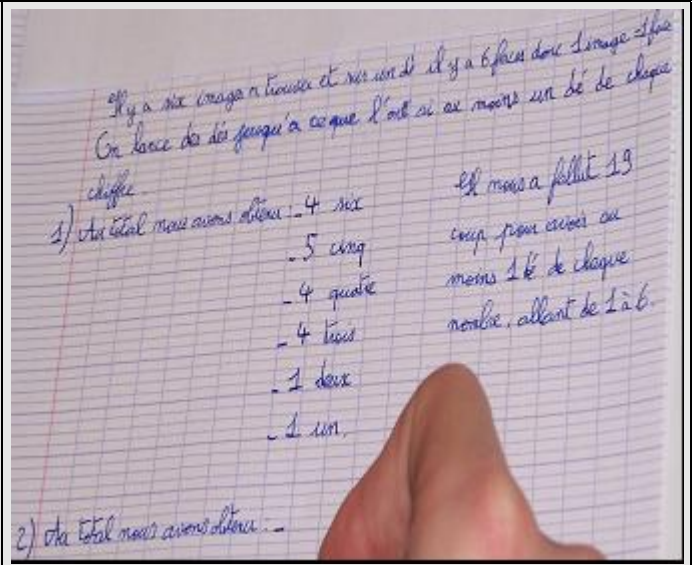 Il y a six image a trouver et sur un dé il y a 6 faces donc 1 image = 1 face
On lance des dés jusqu'a ce que l'ont ai au moins un dé de chaque
chiffre.
1) Au total nous avons obtenu : - 4 six
- 5 cinq
- 4 quatre
- 4 trois
- 1 deux
- 1 un.
Il nous a fallut 19
coup pour avoir au
moins 1 dé de chaque
nombre, allant de 1 à 6.
2) Au total nous avons obtenu : -